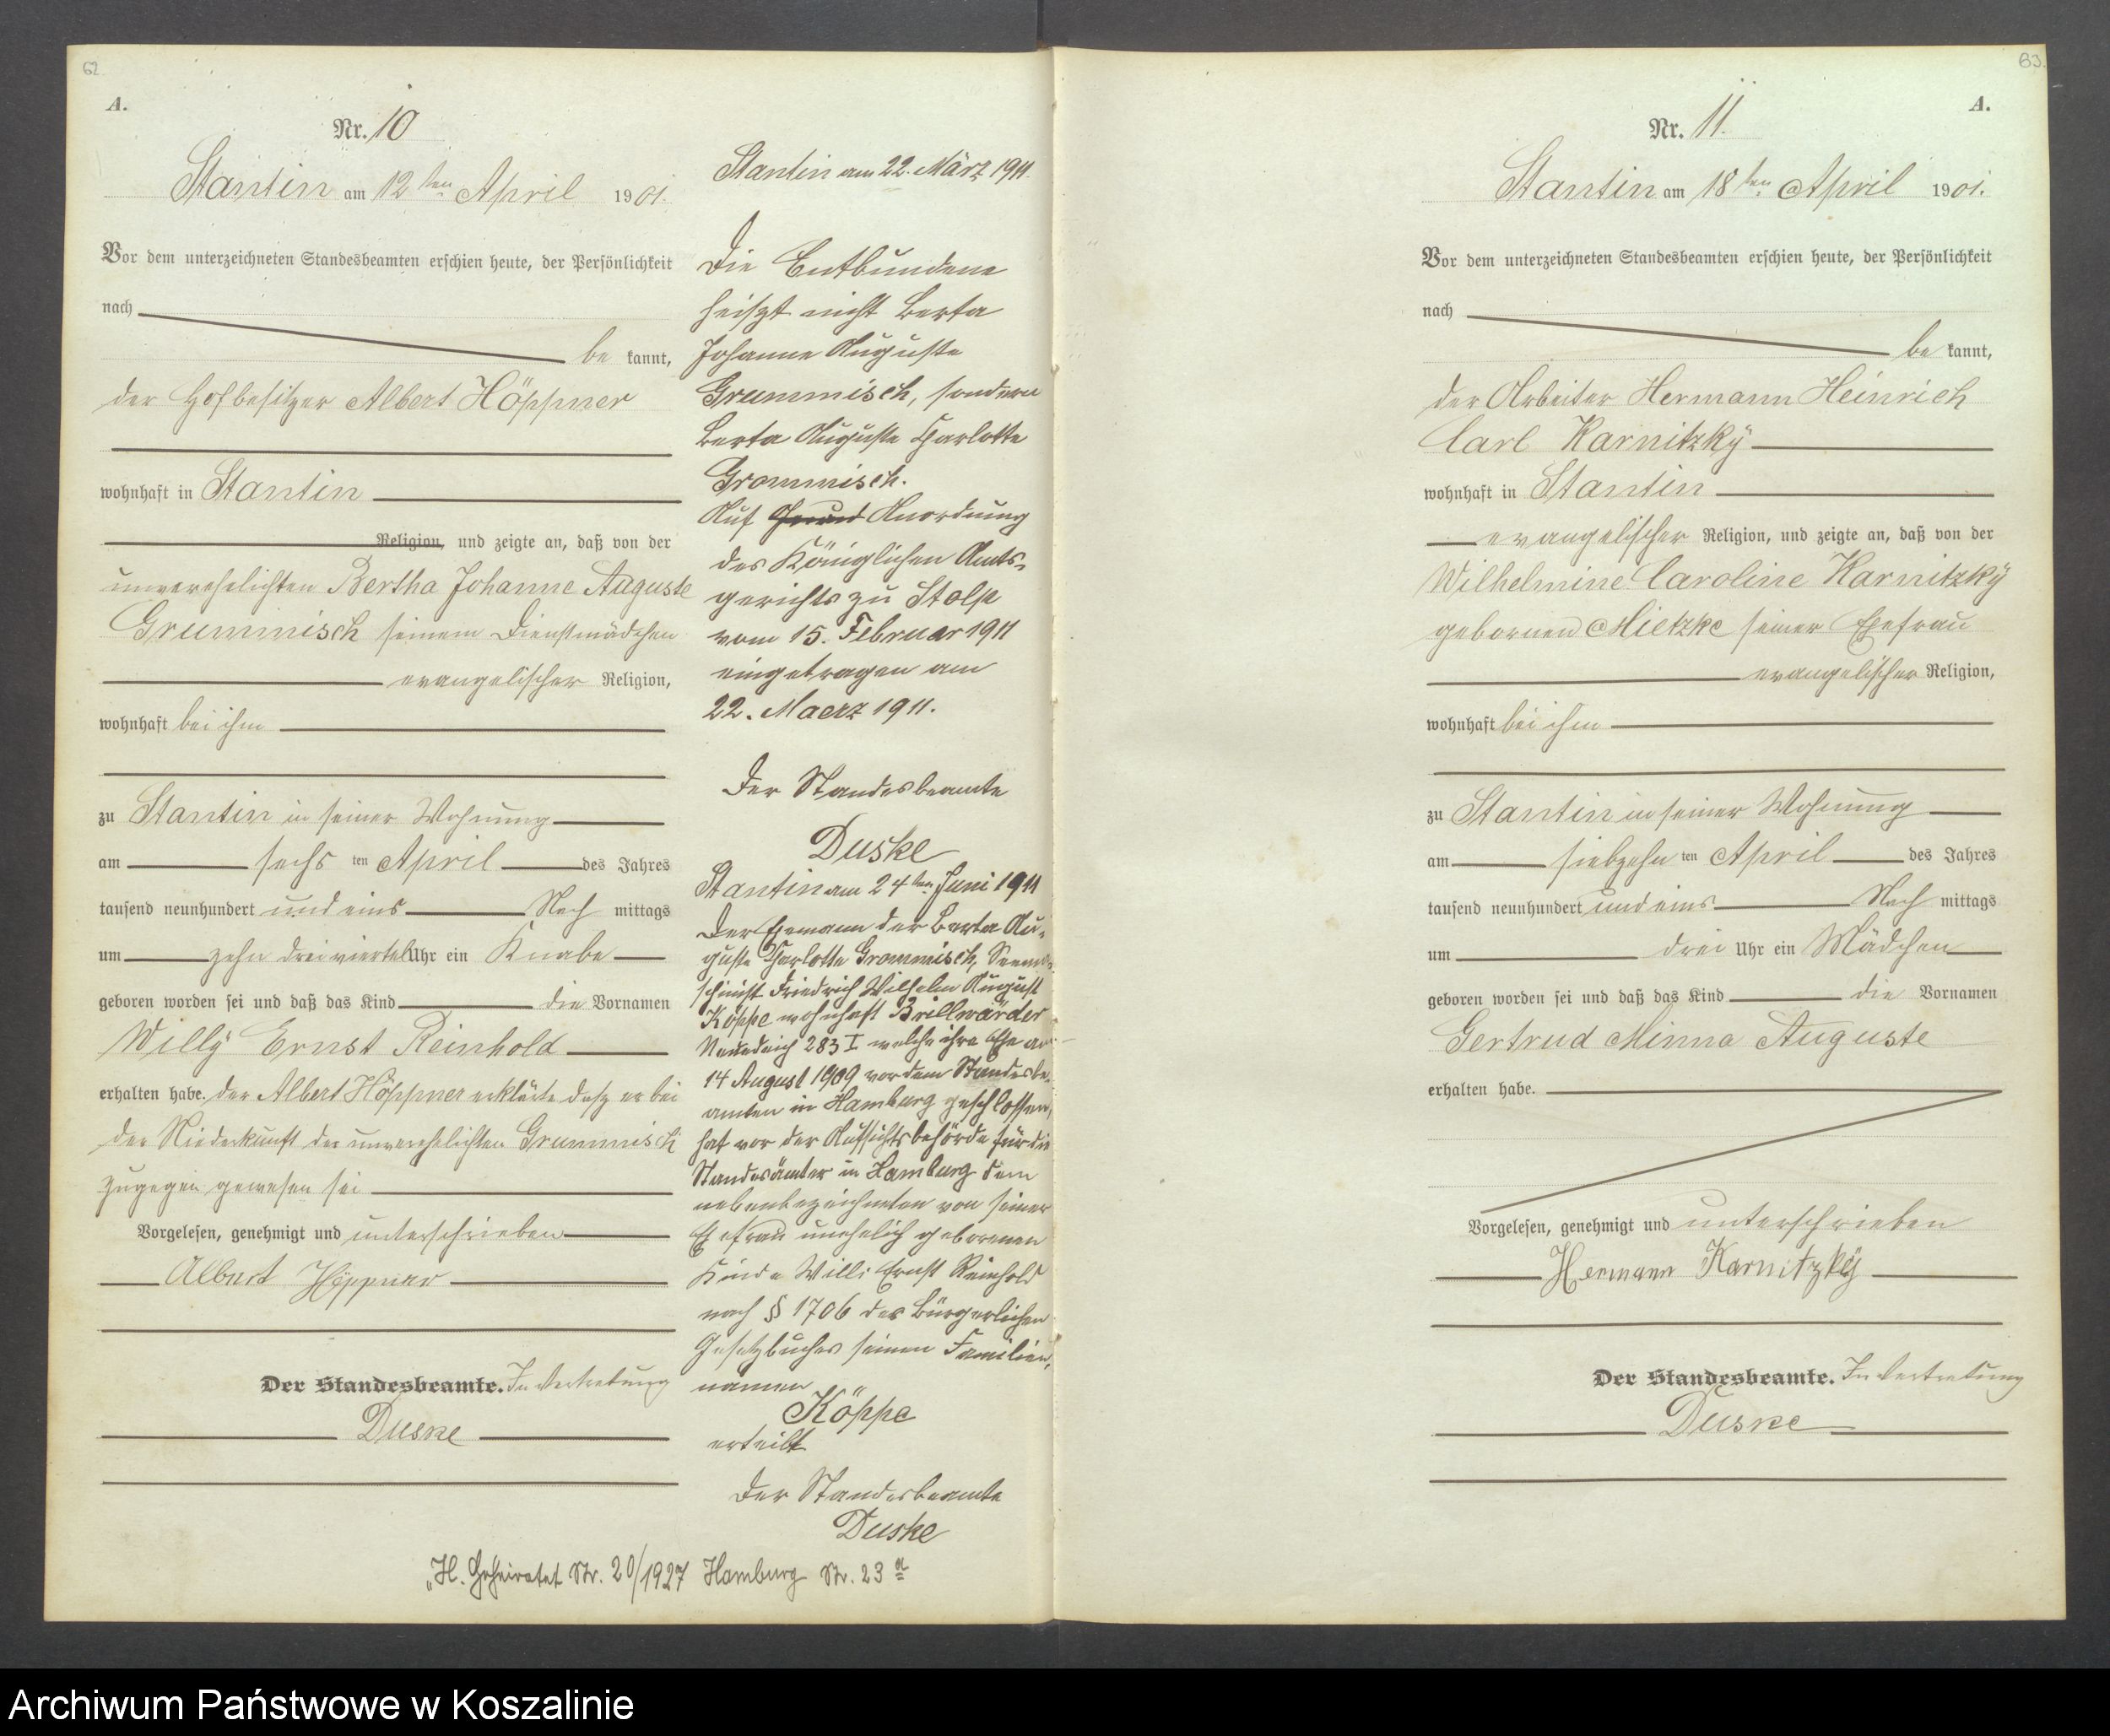 62.
A.
Nr. 10
Stantin am 12ten April 1901.
Vor dem unterzeichneten Standesbeamten erschien heute, der Persönlichkeit
nach
be kannt,
der Hofbesitzer Albert Höppner
wohnhaft in Stantin
Religion, und zeigte an, daß von der
unverehelichten Bertha Johanne Auguste
Grummisch seinem Dienstmädchen
evangelischer Religion,
wohnhaft bei ihm
zu Stantin in seiner Wohnung
am sechs ten April des Jahres
tausend neunhundert und eins Nach mittags
um zehn dreiviertel Uhr ein Knabe
geboren worden sei und daß das Kind die Vornamen
Willy Ernst Reinhold
erhalten habe. der Albert Höppner erklärte dasz er bei
der Niederkunft der unverehelichten Grummisch
zugegen gewesen sei
Vorgelesen, genehmigt und unterschrieben
Albert Höppner
Der Standesbeamte. In Vertretung
Duske
Stantin am 22. März 1911.
Die Entbundene
heiszt nicht Berta
Johanne Auguste
Grummisch, sondern
Berta Auguste Charlotte
Grommisch.
Auf Grund Anordnung
des Königlichen Amts-
gerichts zu Stolp
vom 15. Februar 1911
eingetragen am
22. Maerz 1911.
Der Standesbeamte
Duske
Stantin am 24ten Juni 1911
Der Ehemann der Berta Au-
guste Charlotte Grommisch, Seema-
schinist Friedrich Wilhelm August
Köppe wohnhaft Billwärder
Neuedeich 283 I welche ihre Ehe am
14 August 1909 vor dem Standesbe-
amten in Hamburg geschlossen,
hat vor der Aufsichtsbehörde für die
Standesämter in Hamburg dem
nebenbezeichneten von seiner
Ehefrau unehelich geborenen
Kinde Willi Ernst Reinhold
nach § 1706 des Bürgerlichen
Gesetzbuches seinen Familien-
namen
Köppe
erteilt
Der Standesbeamte
Duske
"H. Geheiratet Nr. 20/1927 Hamburg Nr. 23 a
63.
A.
Nr. 11.
Stantin am 18ten April 1901.
Vor dem unterzeichneten Standesbeamten erschien heute, der Persönlichkeit
nach
be kannt,
der Arbeiter Hermann Heinrich
Carl Karnitzky
wohnhaft in Stantin
evangelischer Religion, und zeigte an, daß von der
Wilhelmine Caroline Karnitzky
gebornen Mietzke seiner Ehefrau
evangelischer Religion,
wohnhaft bei ihm
zu Stantin in seiner Wohnung
am siebzehn ten April des Jahres
tausend neunhundert und eins Nach mittags
um drei Uhr ein Mädchen
geboren worden sei und daß das Kind die Vornamen
Gertrud Minna Auguste
erhalten habe.
Vorgelesen, genehmigt und unterschrieben
Hermann Karnitzky
Der Standesbeamte. In Vertretung
Duske
Archiwum Państwowe w Koszalinie